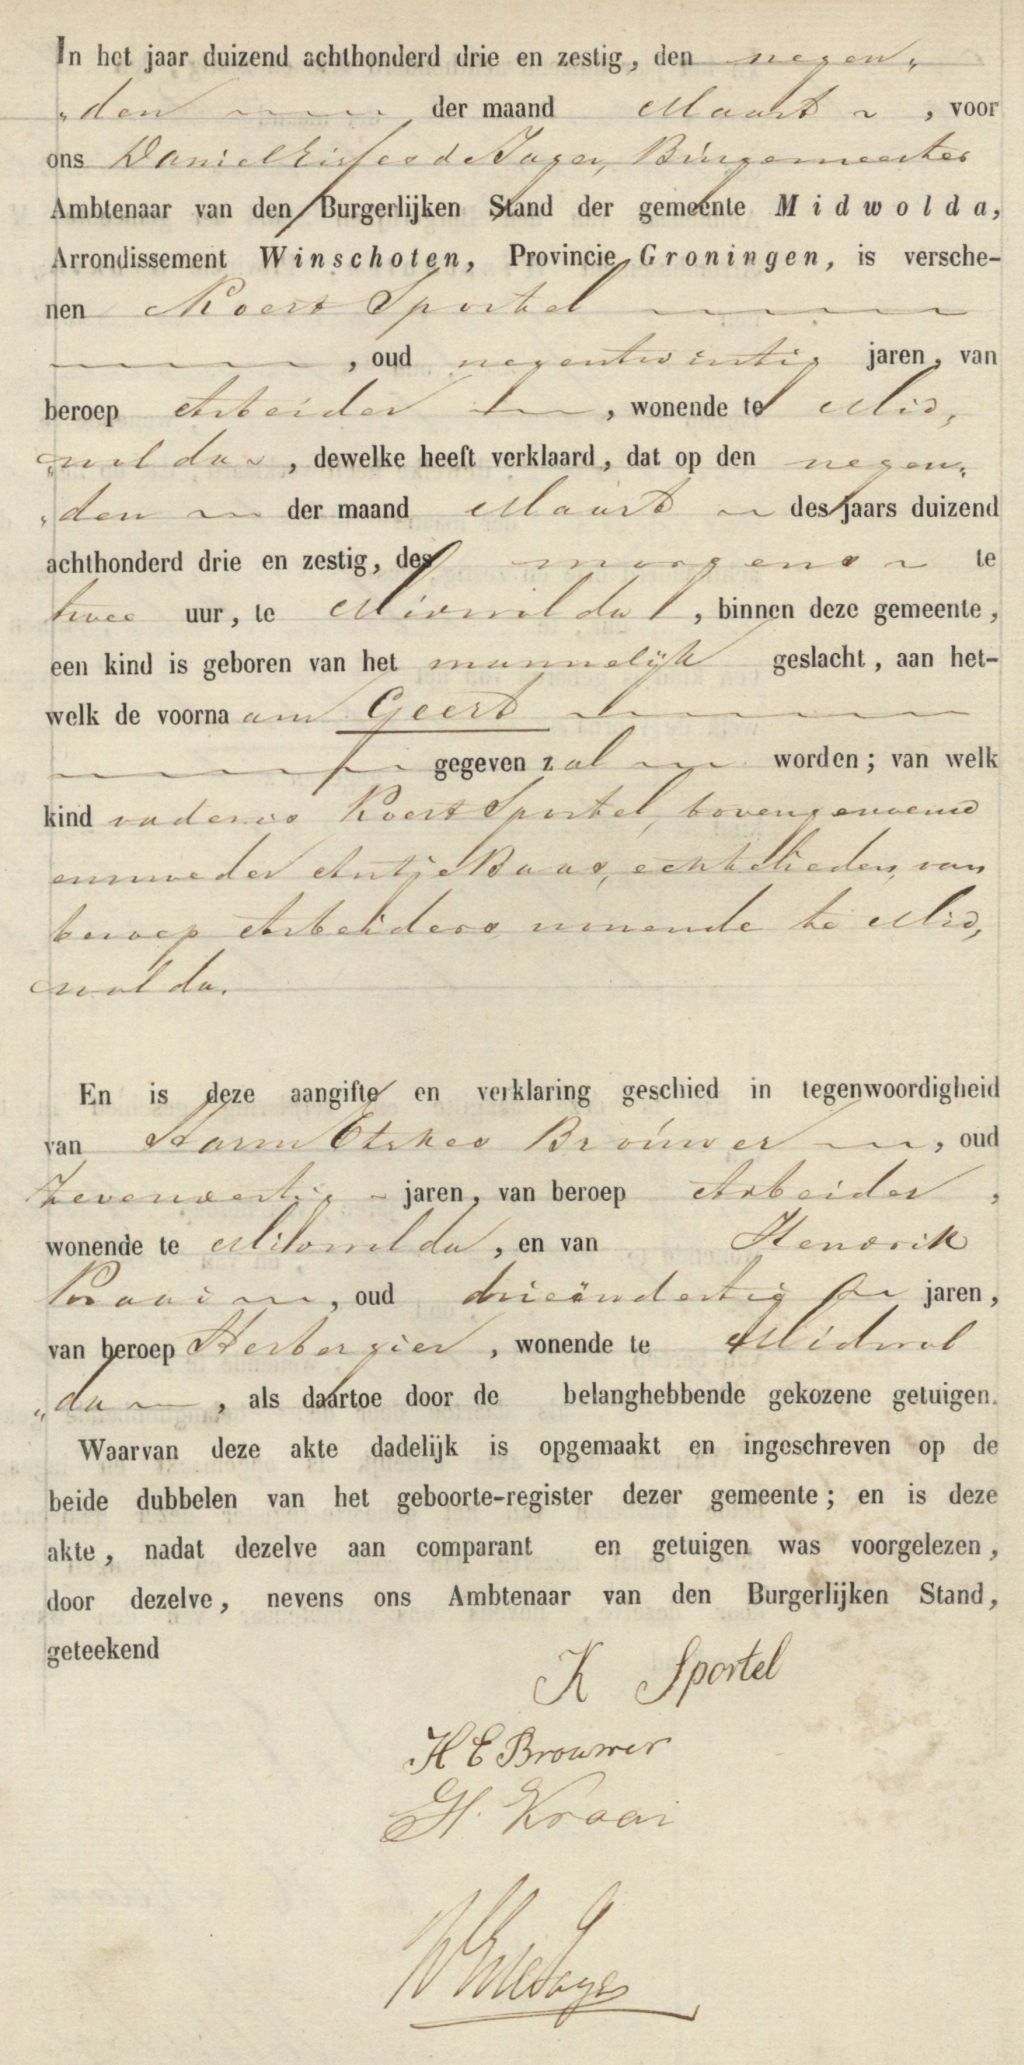 In het jaar duizend achthonderd drie en zestig, den negen„
„den der maand Maart, voor
ons Daniel Eisses de Jager, Burgemeester
Ambtenaar van den Burgerlijken Stand der gemeente Midwolda,
Arrondissement Winschoten, Provincie Groningen, is versche-
nen Koert Sportel
, oud negentwintig jaren, van
beroep Arbeider, wonende te Mid„
„wolda, dewelke heeft verklaard, dat op den negen„
„den der maand Maart des jaars duizend
achthonderd drie en zestig, des morgens te
twee uur, te Midwolda, binnen deze gemeente,
een kind is geboren van het mannelijk geslacht, aan het-
welk de voornaam Geert
gegeven zal worden; van welk
kind vader is Koert Sportel, bovengenoemd
en moeder Antje Baas, echtelieden, van
beroep Arbeiders, wonende te Mid„
wolda.
En is deze aangifte en verklaring geschied in tegenwoordigheid
van Harm Etskes Brouwer, oud
zevenveertig jaren, van beroep Arbeider,
wonende te Midwolda, en van Hendrik
Kraai, oud drieëndertig jaren,
van beroep Herbergier, wonende te Midwol
„da, als daartoe door de belanghebbende gekozene getuigen.
Waarvan deze akte dadelijk is opgemaakt en ingeschreven op de
beide dubbelen van het geboorte-register dezer gemeente; en is deze
akte, nadat dezelve aan comparant en getuigen was voorgelezen,
door dezelve, nevens ons Ambtenaar van den Burgerlijken Stand,
geteekend
K Sportel
H E Brouwer
H. Kraai
DEde Jager